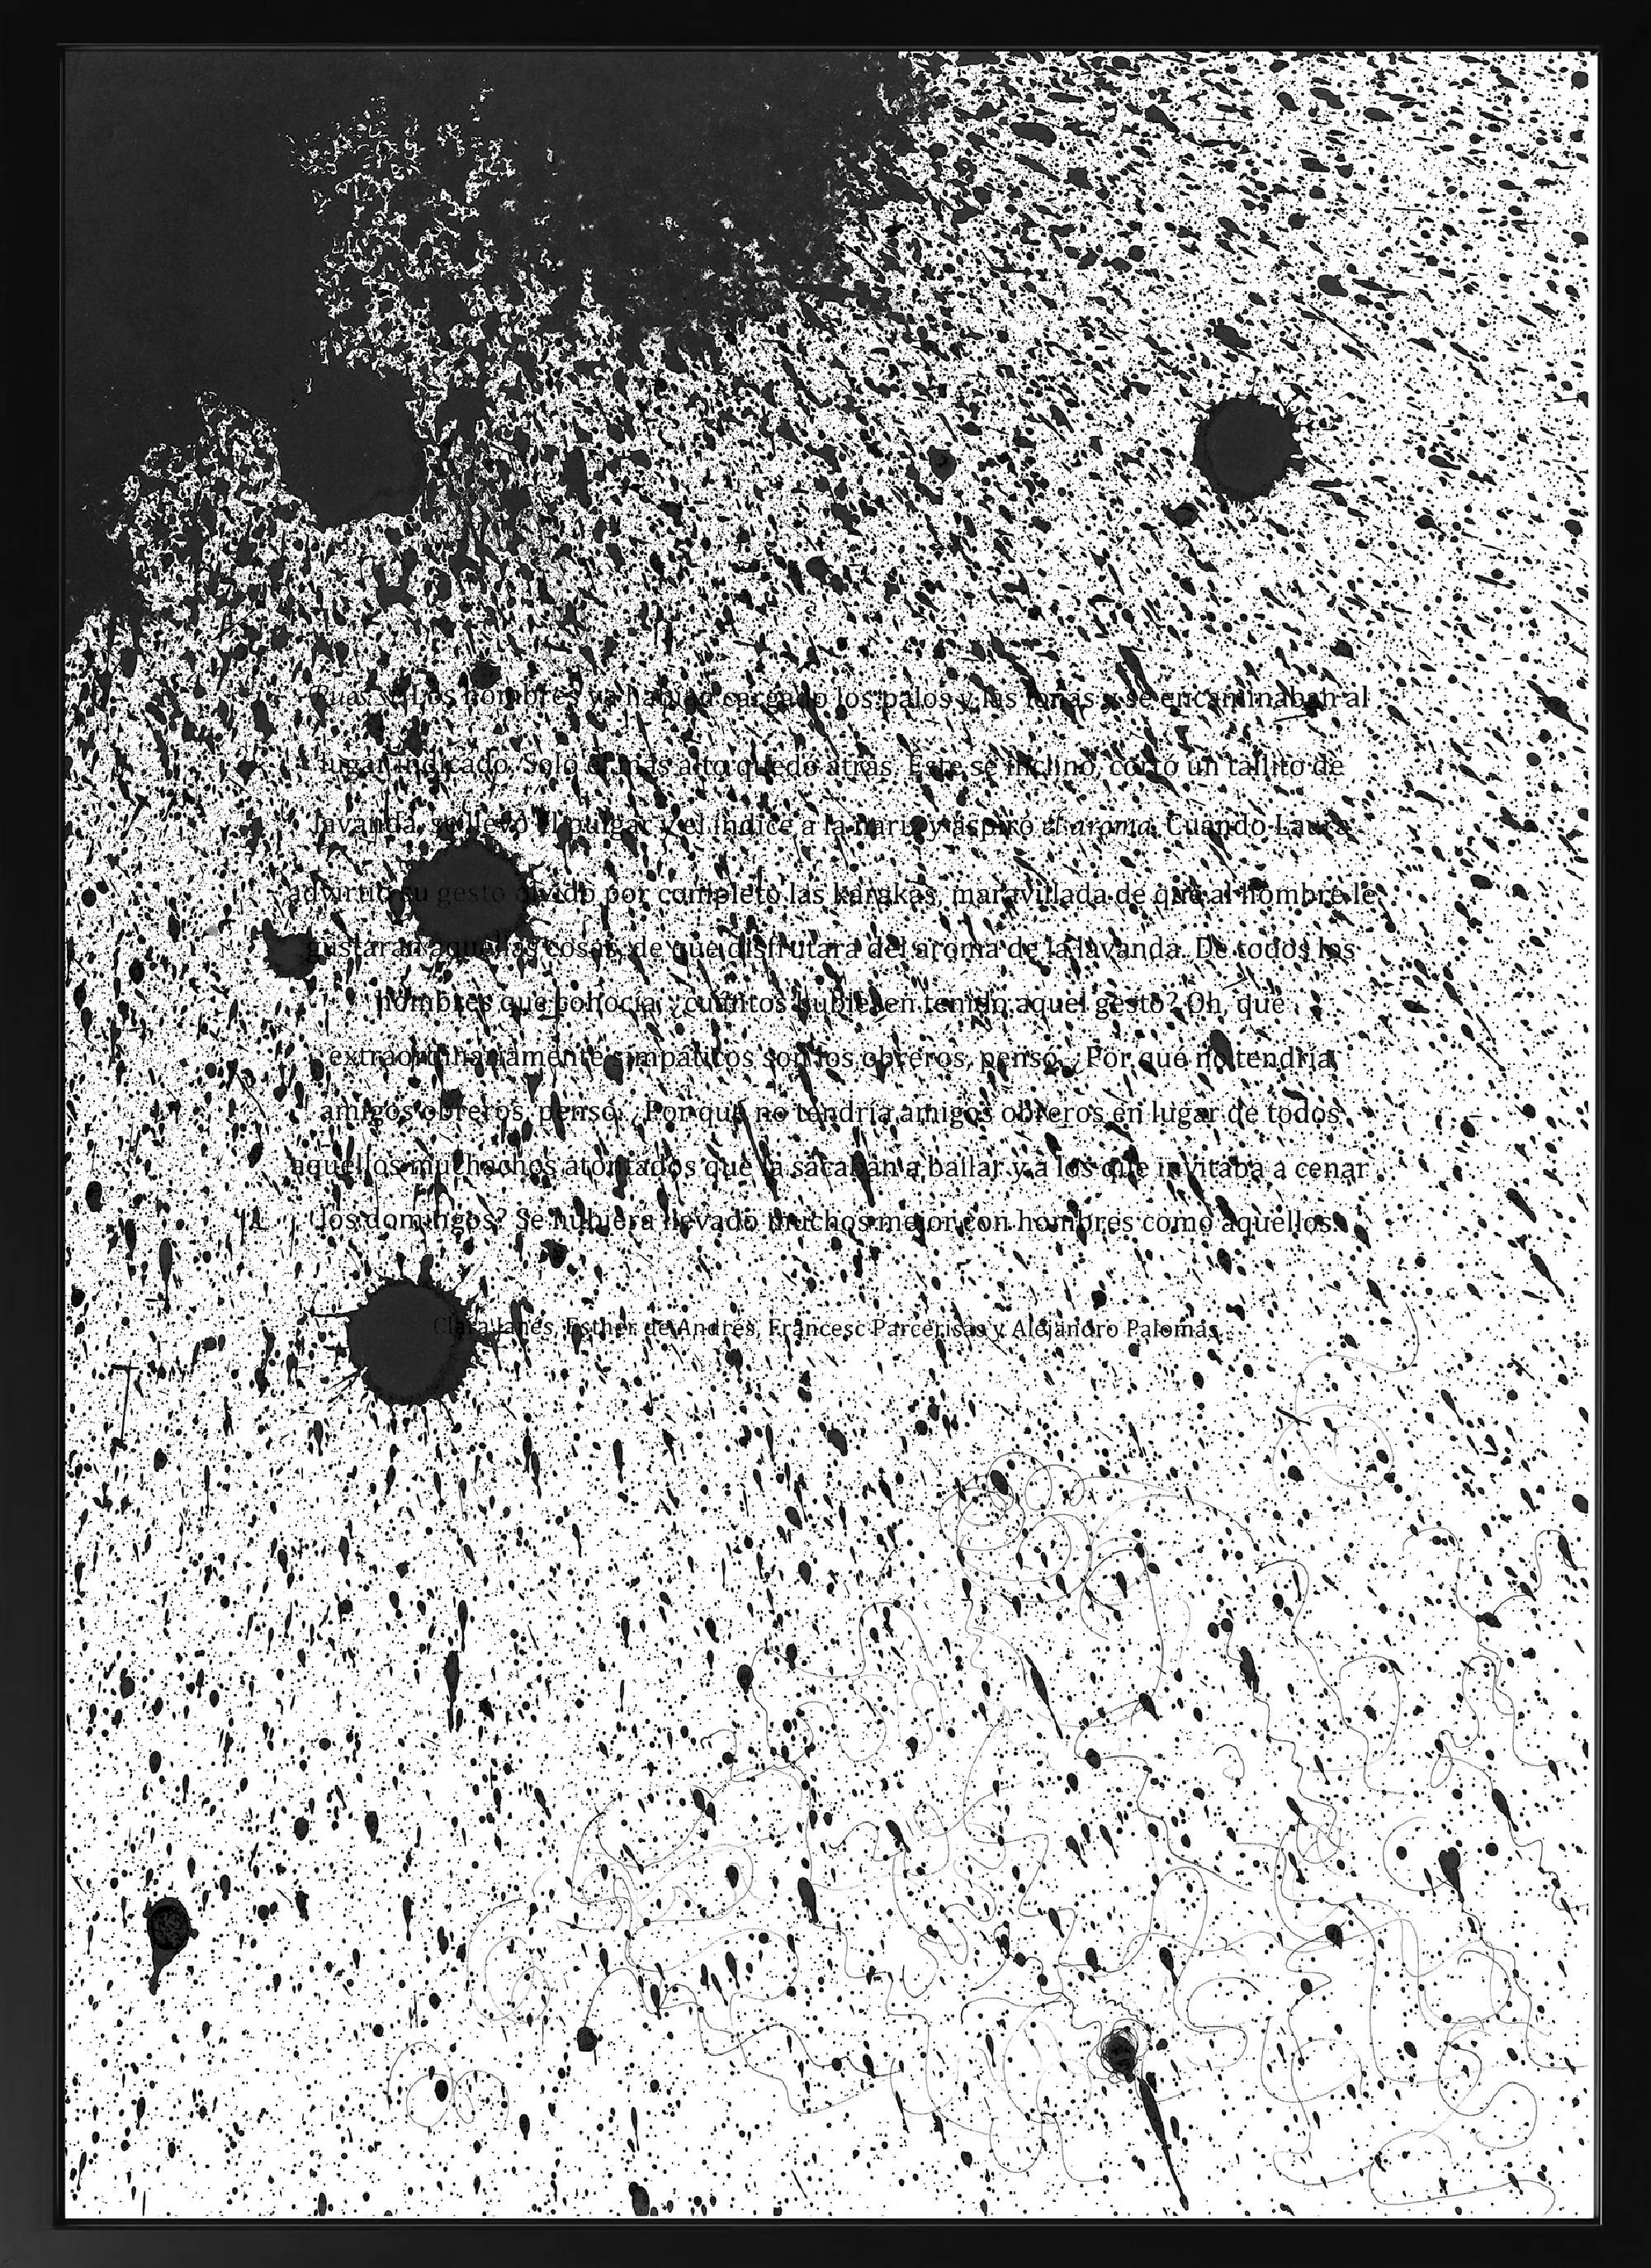 Los hombres ya habían cargado los palos y las lonas y se encaminaban al
lugar indicado. Solo el más alto quedó atrás. Éste se inclinó, cortó un tallito de
lavanda, se llevó el pulgar y el índice a la nariz y aspiró el aroma. Cuando Laura
advirtió su gesto olvidó por completo las karakas, maravillada de que al hombre le
gustaran aquellas cosas, de que disfrutara del aroma de la lavanda. De todos los
hombres que conocía, ¿cuántos hubiesen tenido aquel gesto? Oh, qué
extraordinariamente simpáticos son los obreros, pensó. ¿Por qué no tendría
amigos obreros, pensó. ¿Por qué no tendría amigos obreros en lugar de todos
aquellos muchachos atontados que la sacaban a bailar y a los que invitaba a cenar
los domingos? Se hubiera llevado muchos mejor con hombres como aquellos.
Clara Janés, Esther de Andrés, Francesc Parcerisas y Alejandro Palomas